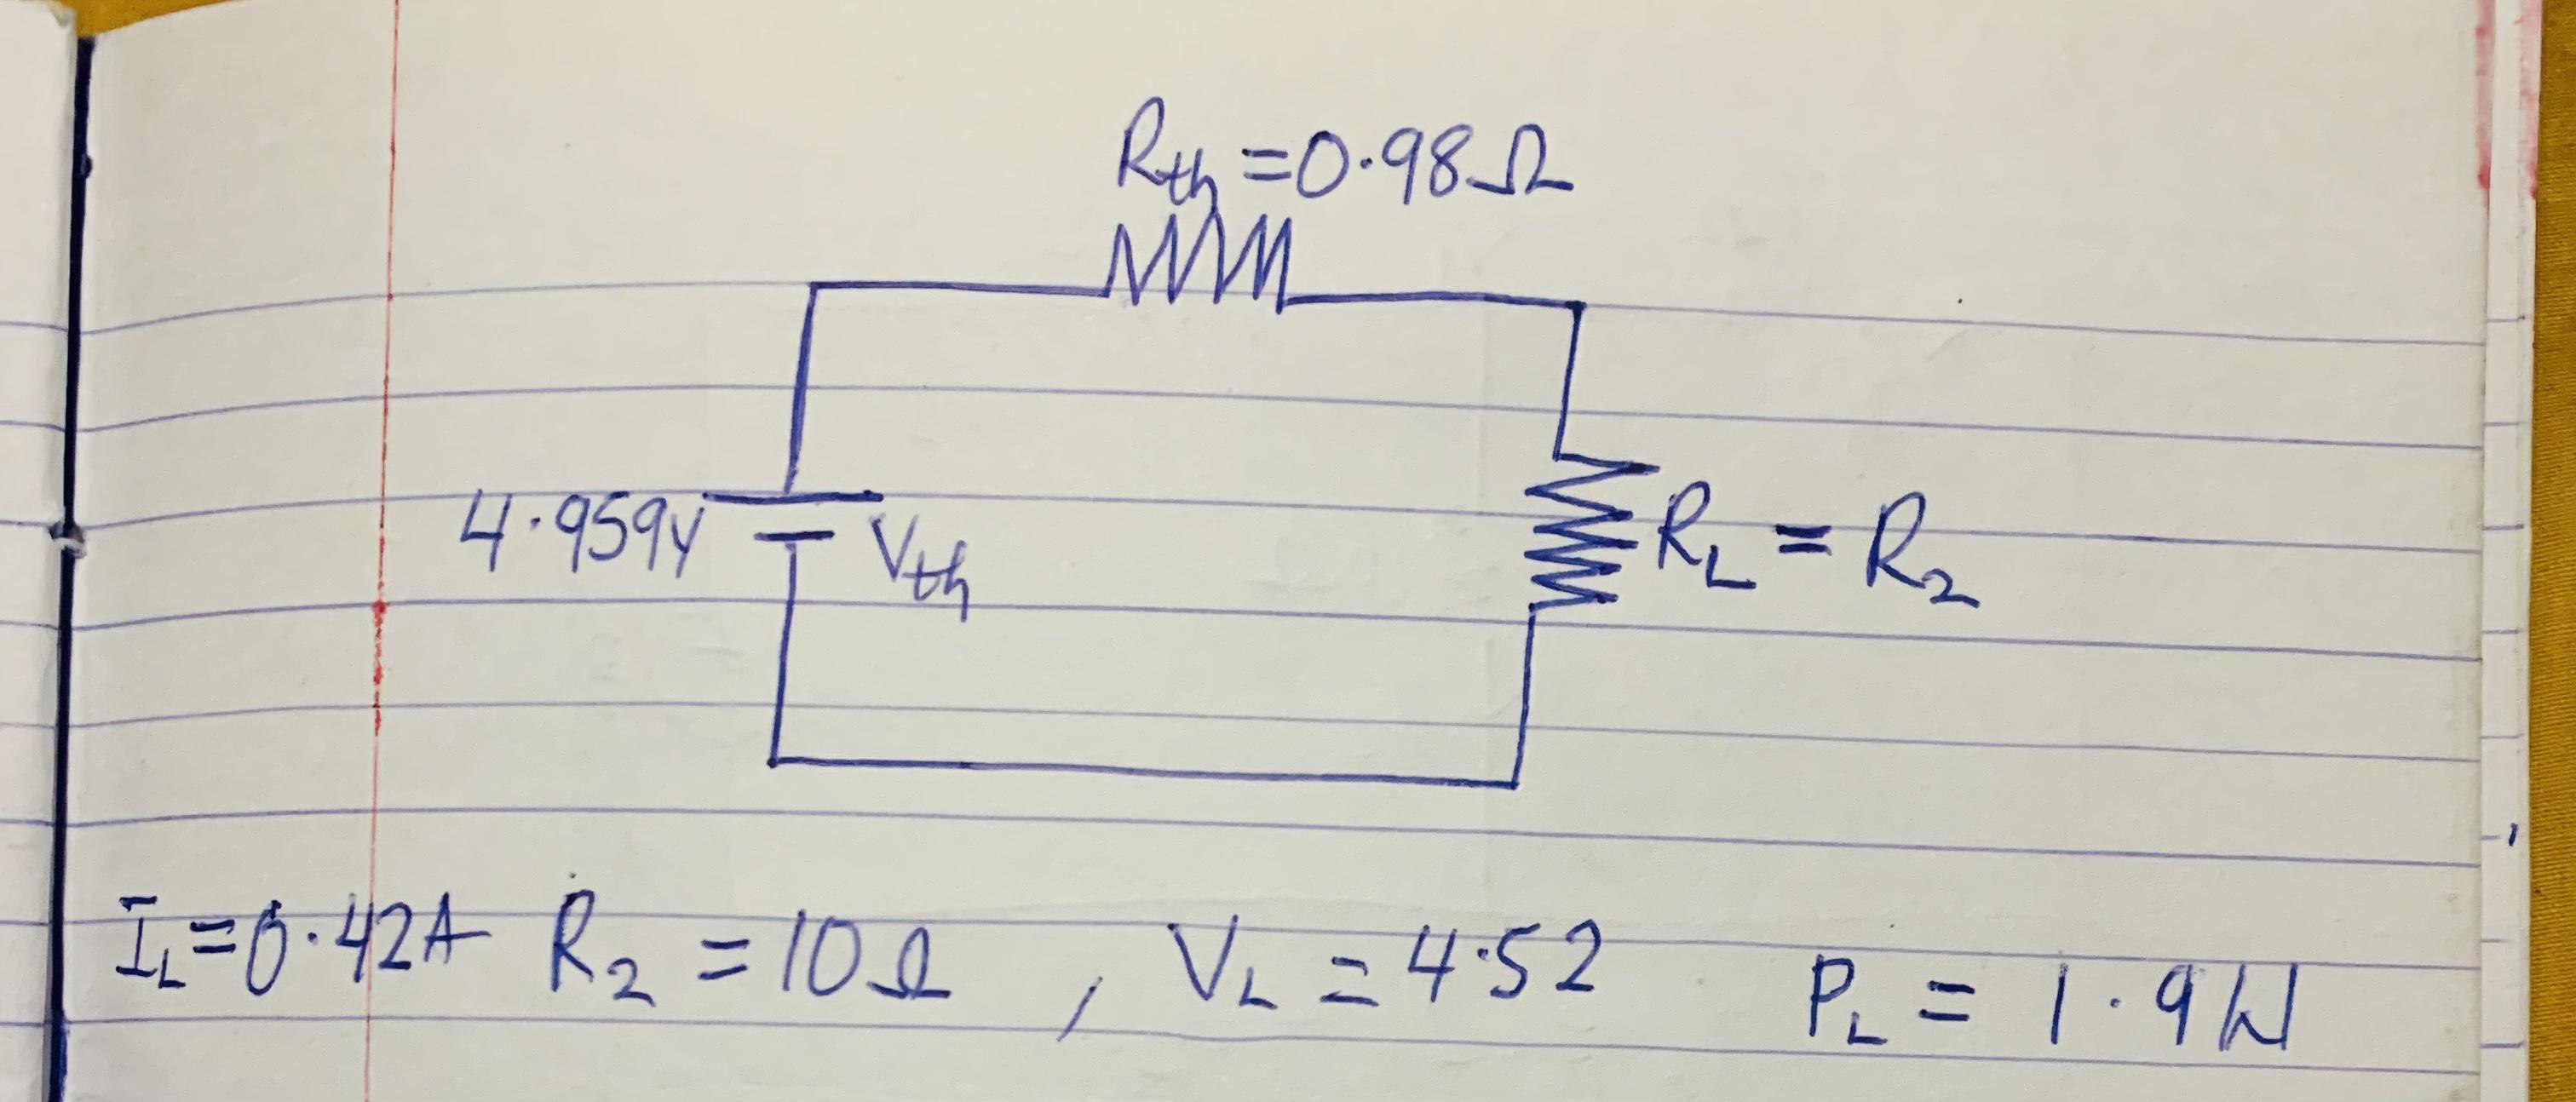 Rth = 0.98Ω
4.959V
Vth
RL = R2
IL = 0.42A R2 = 10Ω , VL = 4.52 PL = 1.9W